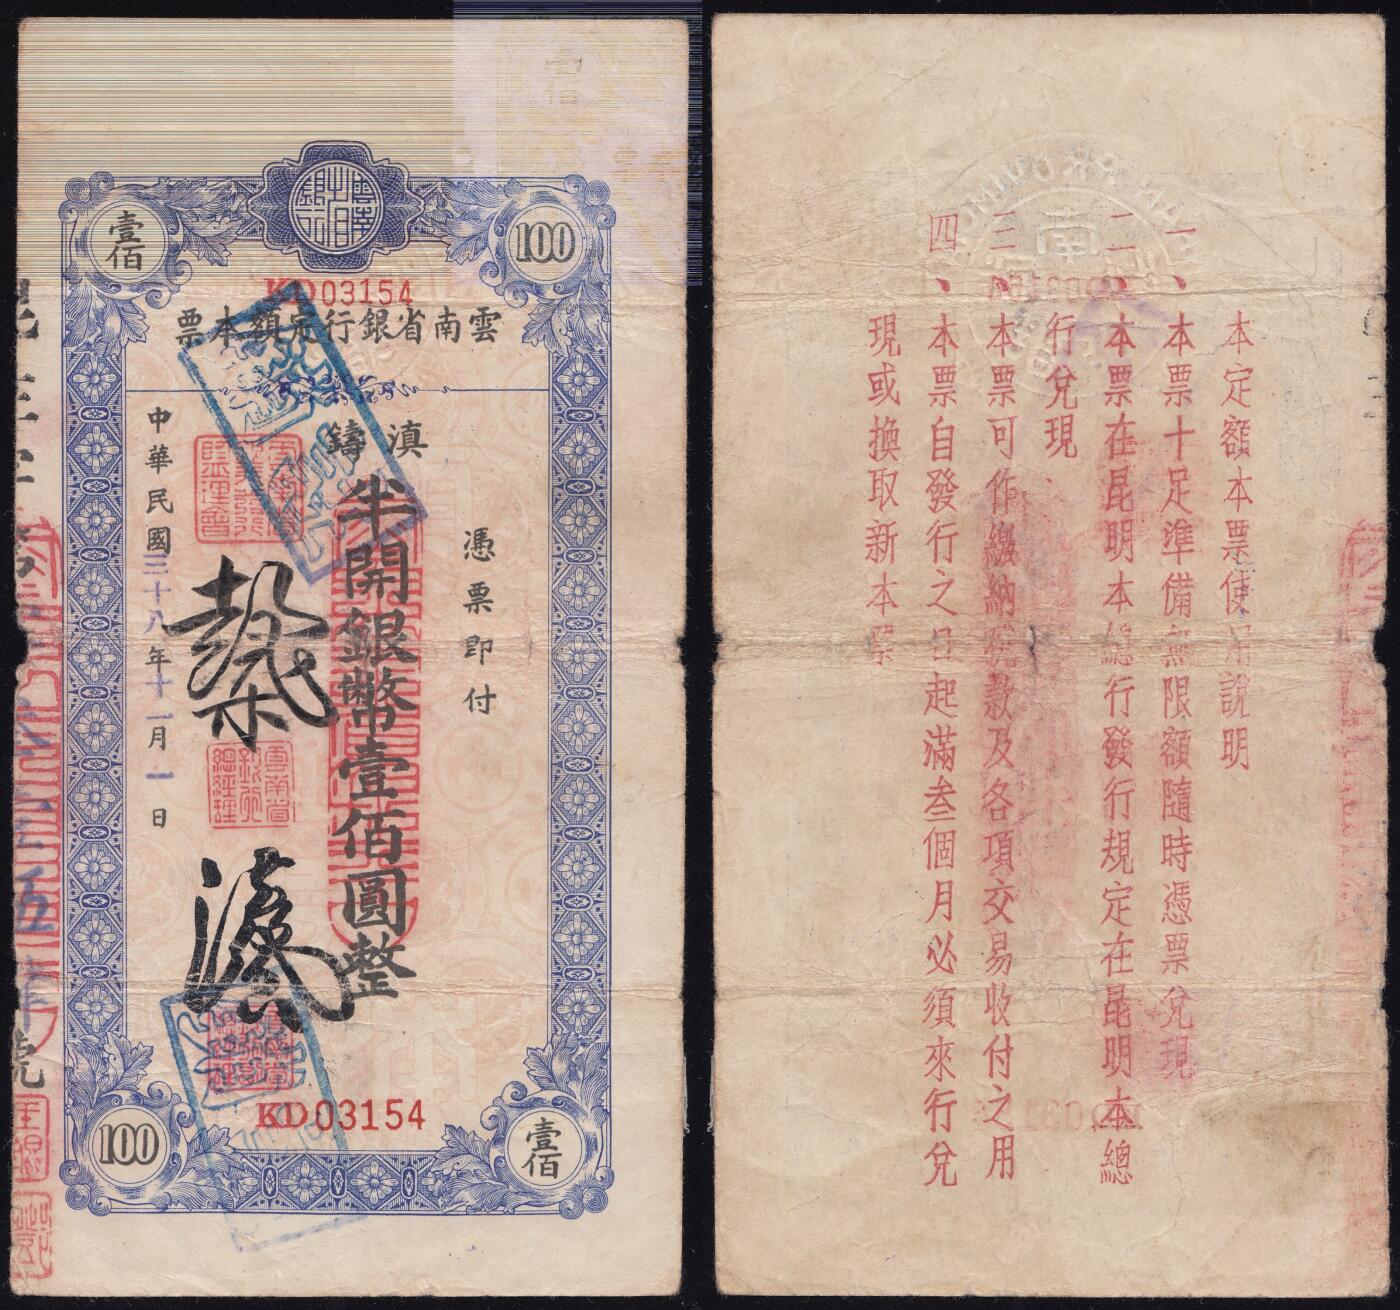 雲南省銀行
壹佰
100
KD03154
雲南省銀行定額本票
憑票即付
滇鑄
半開銀幣壹佰圓整
中華民國三十八年十一月一日
雲南省銀行總經理
KD03154
100
壹佰
本定額本票使用說明
一、本票十足準備無限額隨時憑票兌現
二、本票在昆明本總行發行規定在昆明本總
行兌現
三、本票可作繳納稅款及各項交易收付之用
四、本票自發行之日起滿叁個月必須來行兌
現或換取新本票